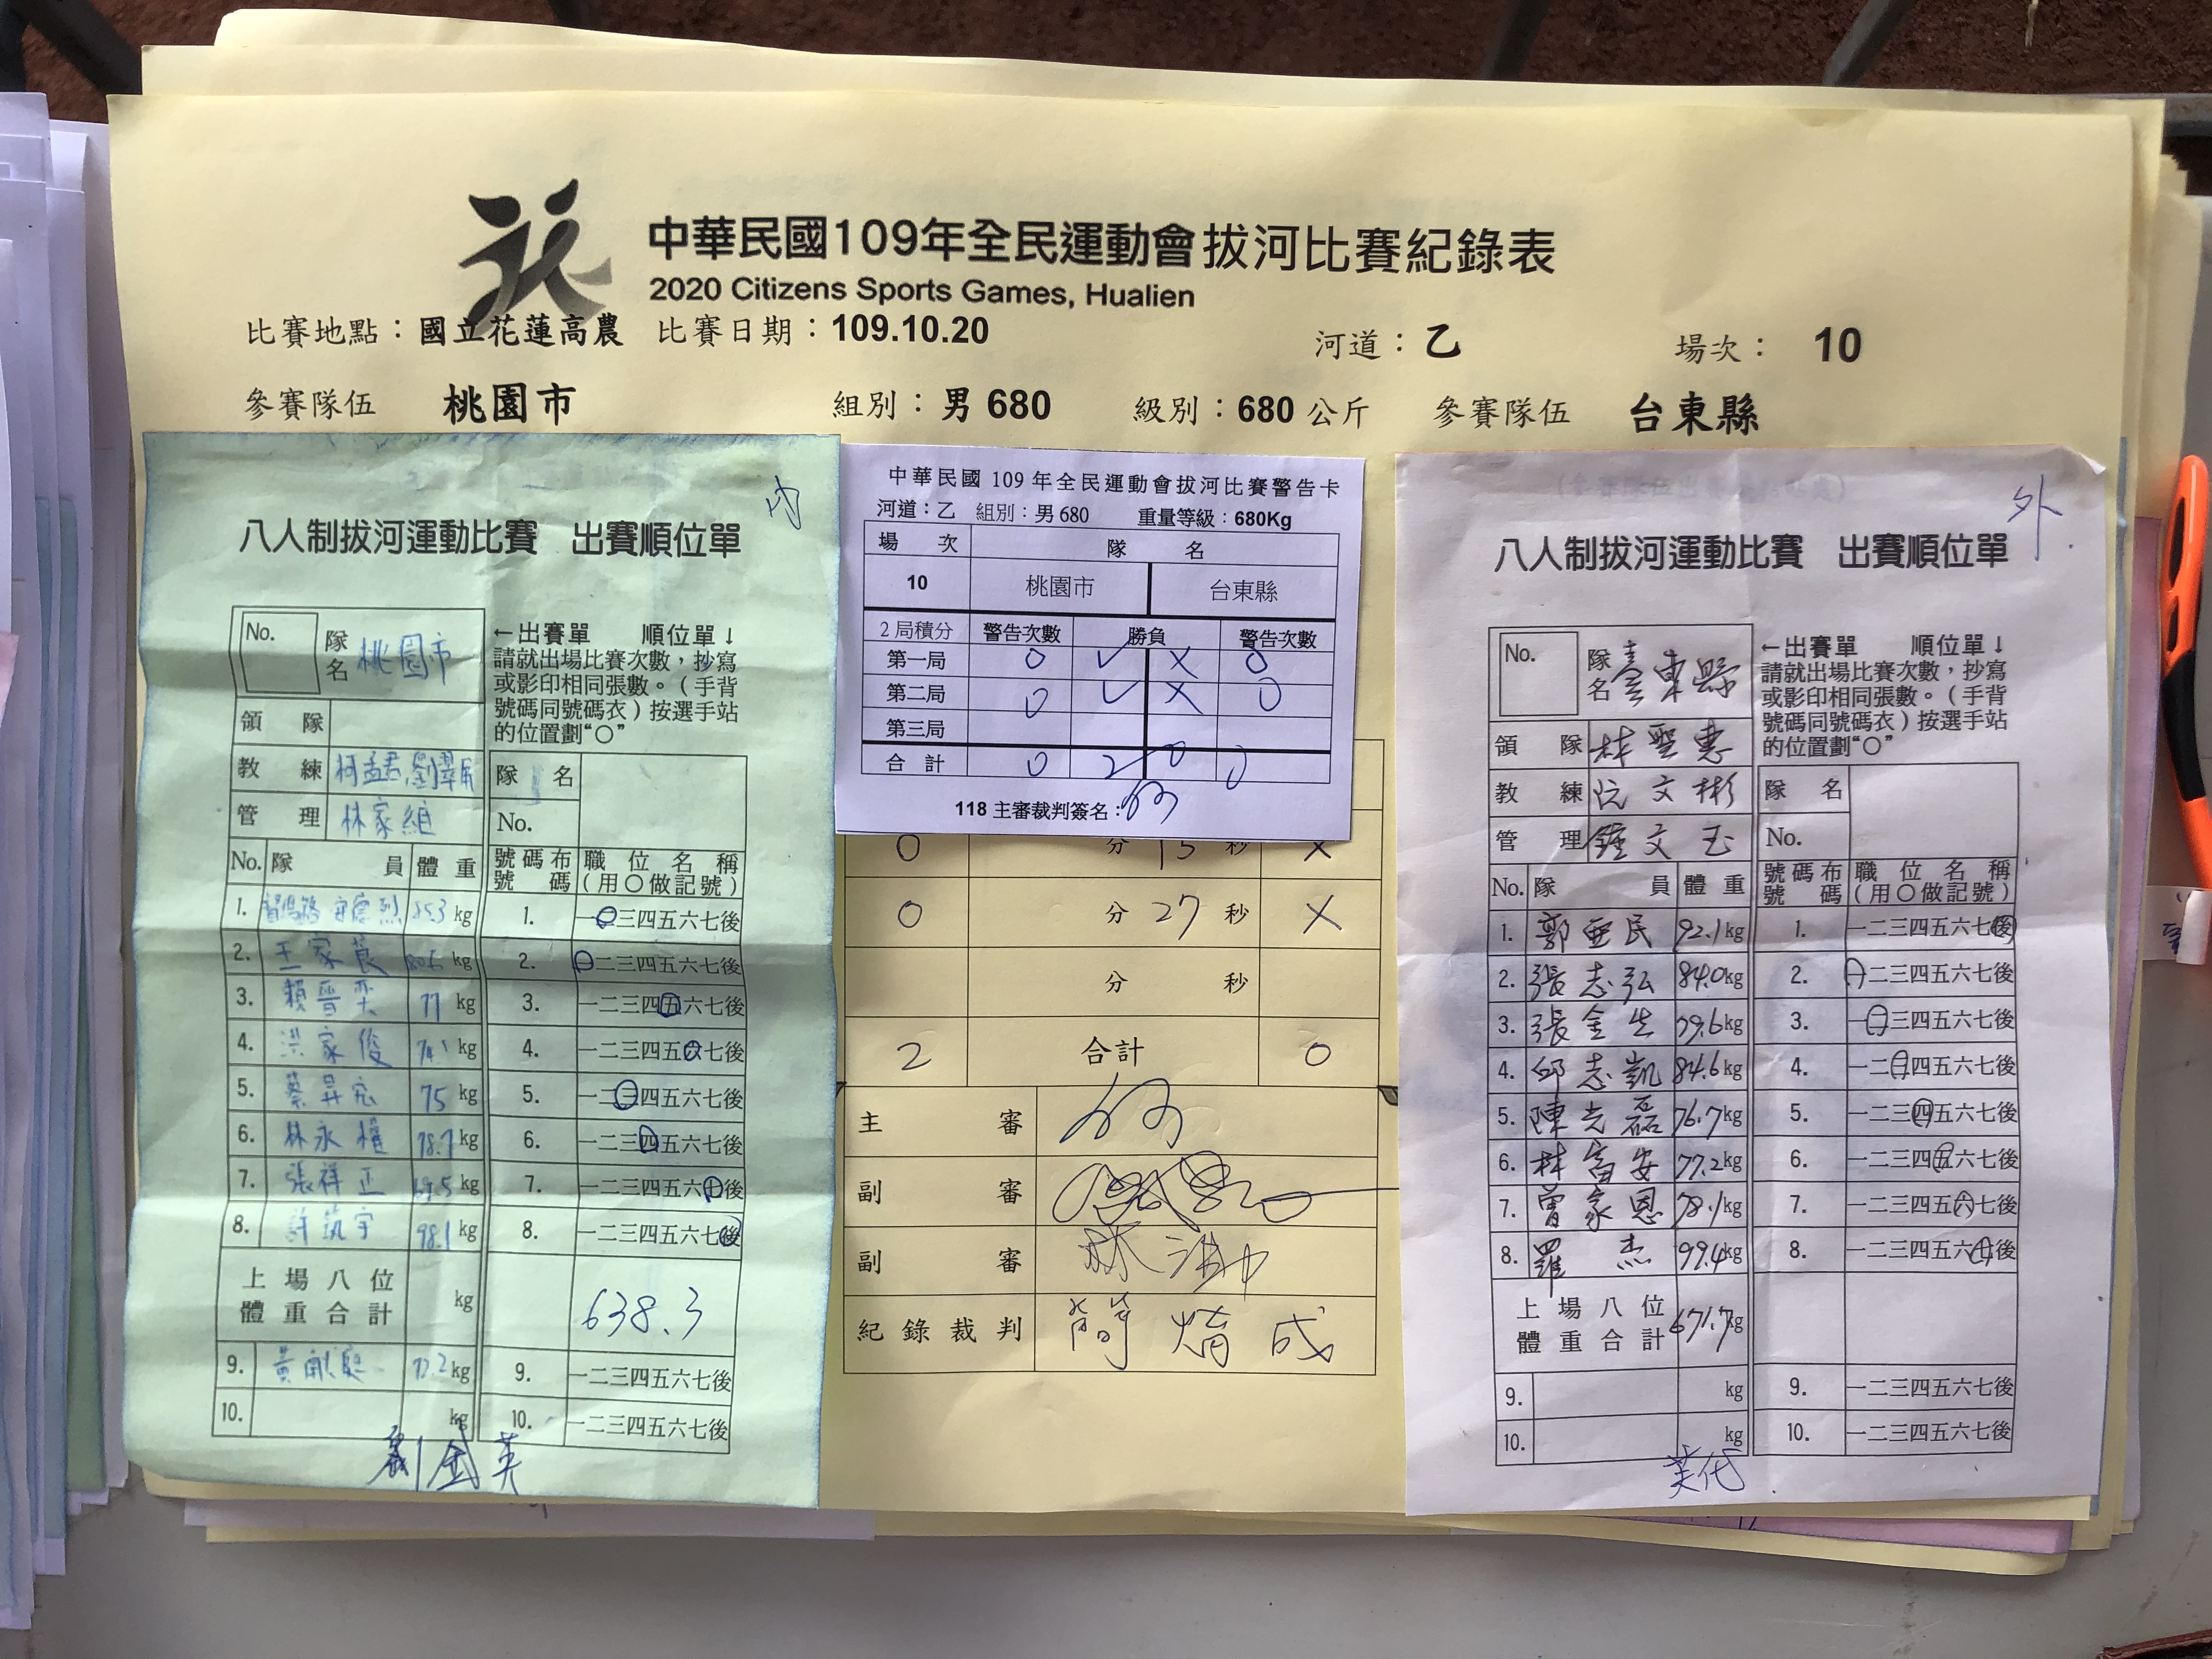 中華民國109年全民運動會拔河比賽紀錄表
2020 Citizens Sports Games, Hualien
比賽地點：國立花蓮高農 比賽日期：109.10.20 河道：乙 場次： 10
參賽隊伍 桃園市 組別：男 680 級別：680 公斤 參賽隊伍 台東縣
內
八人制拔河運動比賽 出賽順位單
No. 隊名 桃園市
←出賽單 順位單↓
請就出場比賽次數，抄寫
或影印相同張數。（手背
號碼同號碼衣）按選手站
的位置劃“○”
領 隊
教 練 柯孟君
管 理 林家維
隊 名
No.
No. 隊 員 體 重 號碼布號碼 職位名稱（用○做記號）
1. 85.3 kg 1. 一二三四五六七後
2. 王家 kg 2. 一二三四五六七後
3. 賴晉 77 kg 3. 一二三四五六七後
4. 洪家俊 kg 4. 一二三四五六七後
5. 蔡昇宏 75 kg 5. 一二三四五六七後
6. 林永權 78.7 kg 6. 一二三四五六七後
7. 張祥正 69.5 kg 7. 一二三四五六七後
8. 許筑宇 98.1 kg 8. 一二三四五六七後
上場八位
體重合計 kg 638.3
9. 黃 kg 9. 一二三四五六七後
10. kg 10. 一二三四五六七後
劉金英
中華民國 109 年全民運動會拔河比賽警告卡
河道：乙 組別：男 680 重量等級：680Kg
場 次 隊 名
10 桃園市 台東縣
2 局積分 警告次數 勝負 警告次數
第一局 0 ✓ X 0
第二局 0 ✓ X 0
第三局
合 計 0 2 0 0
118 主審裁判簽名：
0 分 15 秒 X
0 分 27 秒 X
分 秒
2 合計 0
主 審
副 審
副 審
紀錄裁判 簡 成
外
八人制拔河運動比賽 出賽順位單
No. 隊名 臺東縣
←出賽單 順位單↓
請就出場比賽次數，抄寫
或影印相同張數。（手背
號碼同號碼衣）按選手站
的位置劃“○”
領 隊 林聖惠
教 練 阮文彬
管 理 鍾文玉
隊 名
No.
No. 隊 員 體 重 號碼布號碼 職位名稱（用○做記號）
1. 郭亞民 92.1 kg 1. 一二三四五六七後
2. 張志弘 84.0 kg 2. 一二三四五六七後
3. 張金生 79.6 kg 3. 一二三四五六七後
4. 邱志凱 84.6 kg 4. 一二三四五六七後
5. 陳光磊 76.7 kg 5. 一二三四五六七後
6. 林富安 77.2 kg 6. 一二三四五六七後
7. 曾家恩 78.1 kg 7. 一二三四五六七後
8. 羅杰 99.4 kg 8. 一二三四五六七後
上場八位
體重合計 671.7 kg
9. kg 9. 一二三四五六七後
10. kg 10. 一二三四五六七後